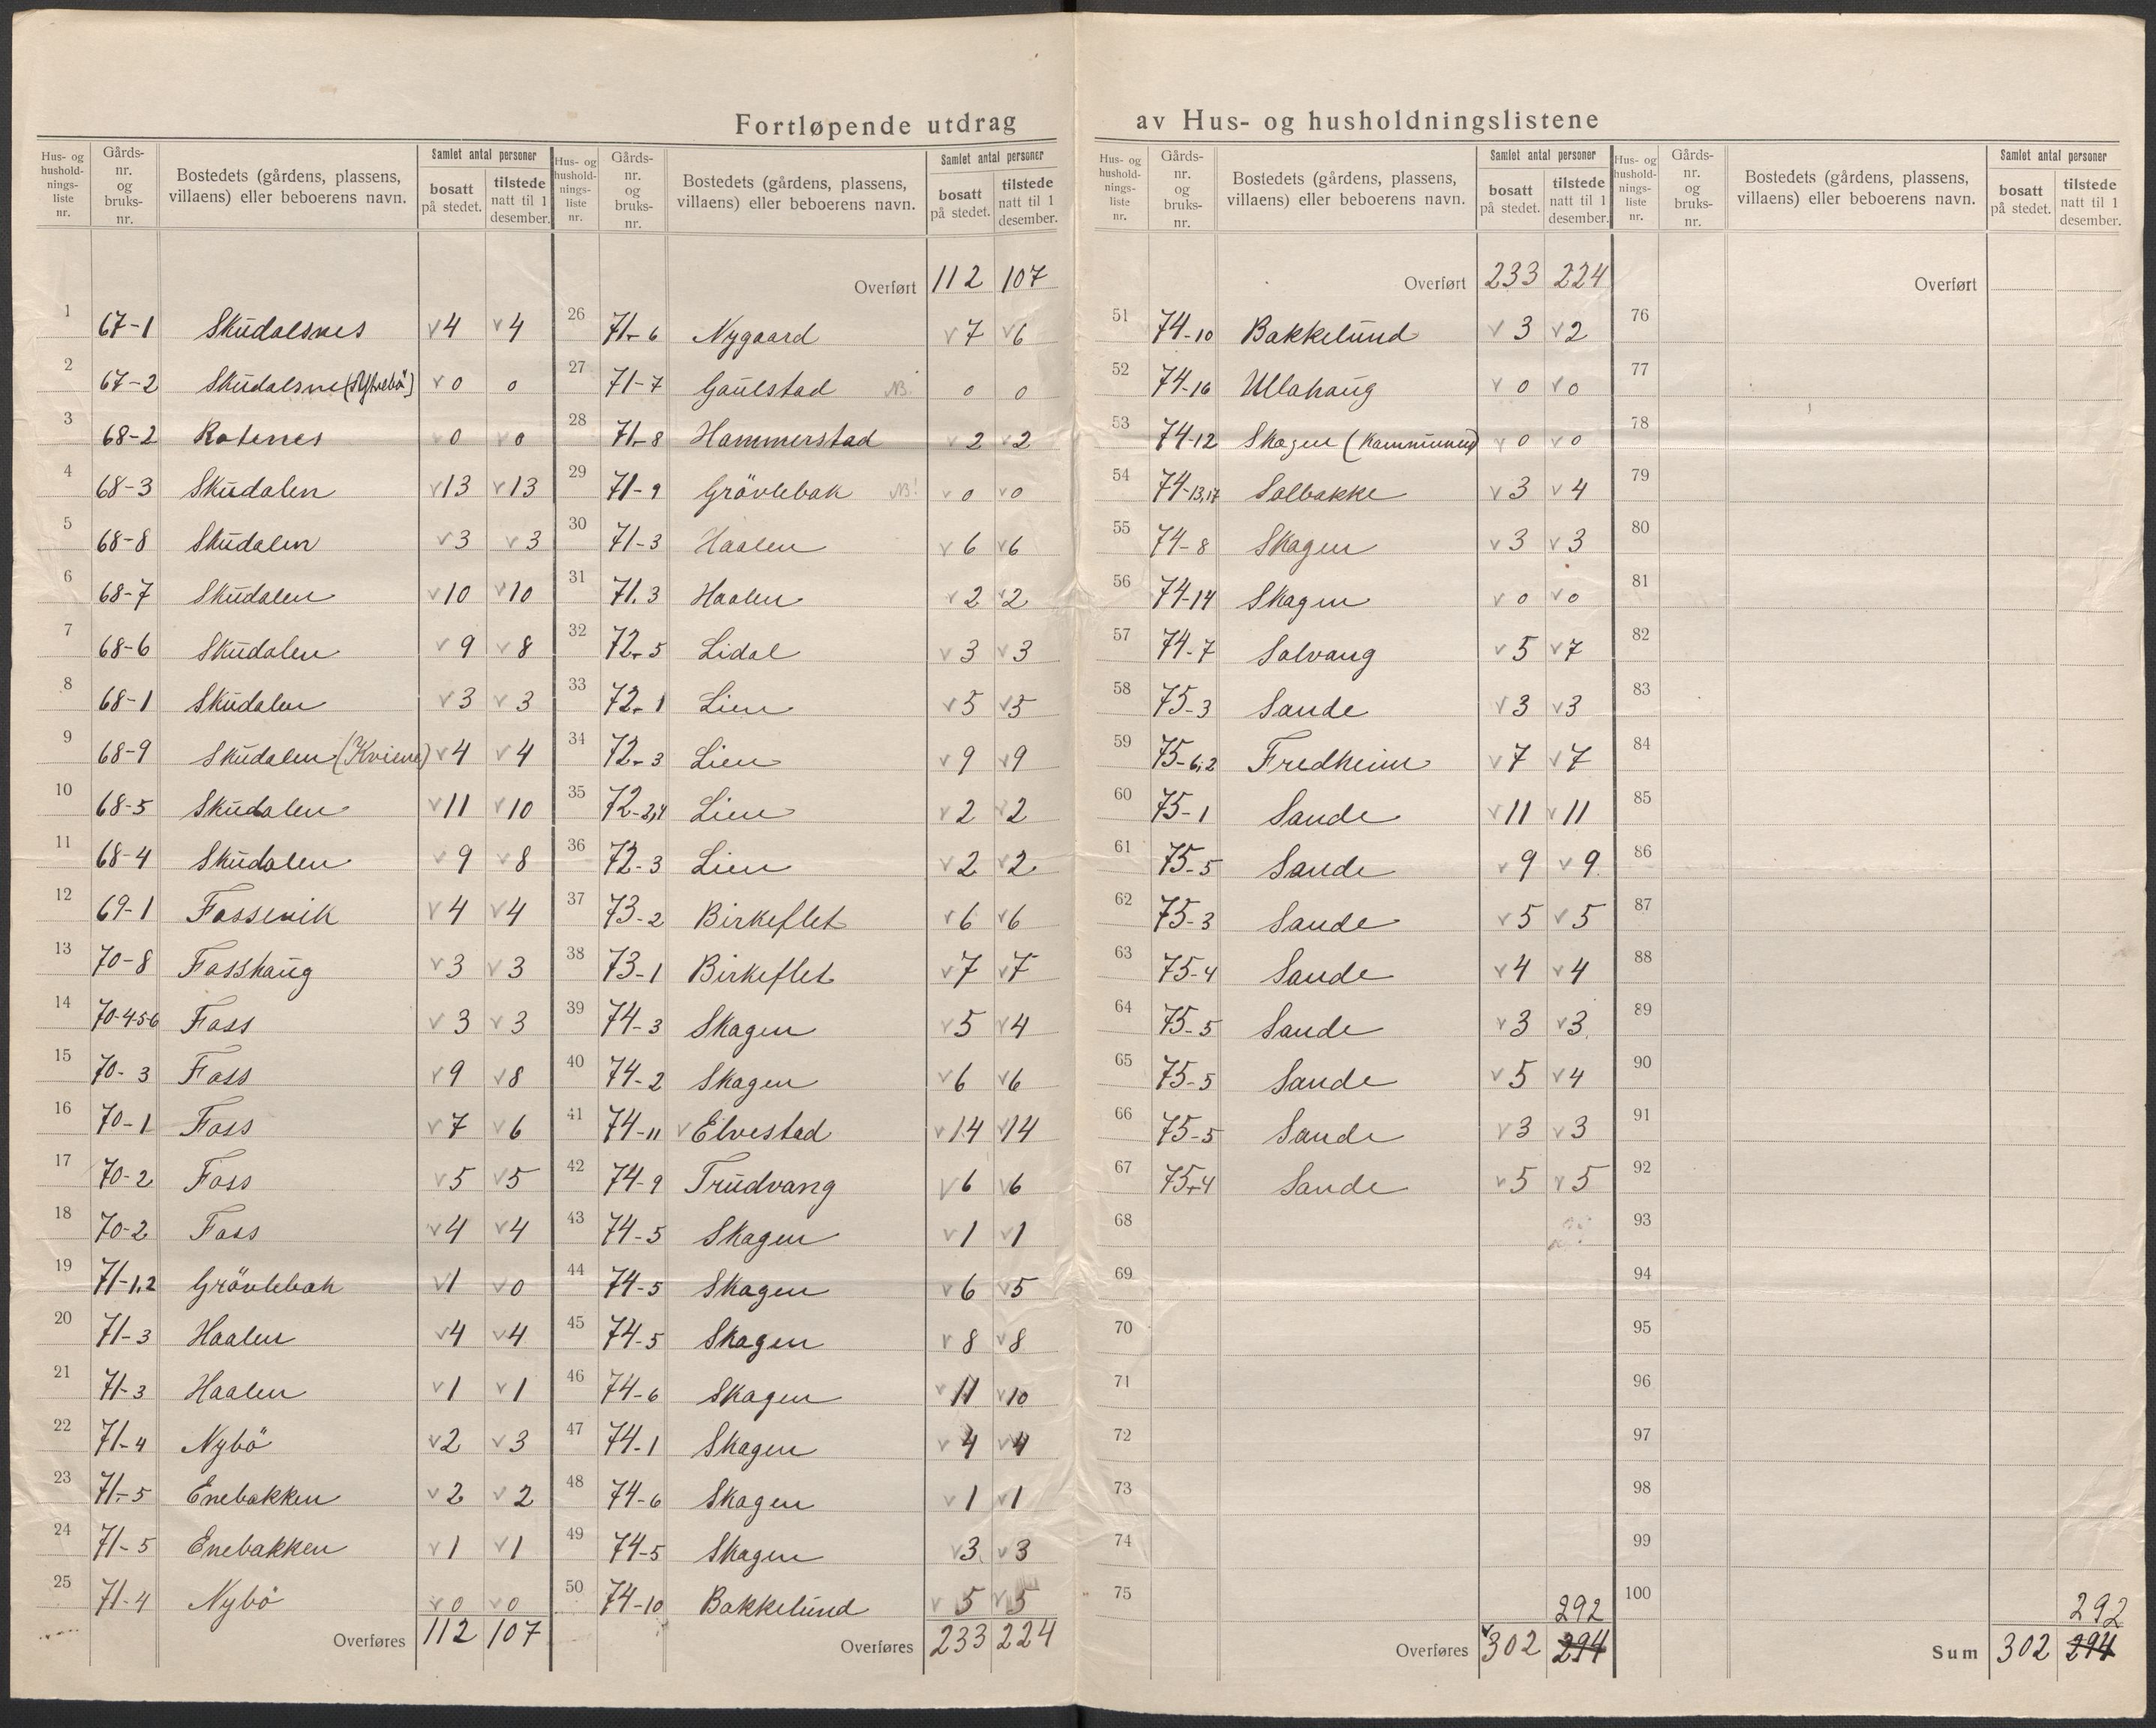 Fortløpende utdrag av Hus- og husholdningslistene
Hus- og husholdningsliste nr. | Gårdsnr. og bruksnr. | Bostedets (gårdens, plassens, villaens) eller beboerens navn. | Samlet antal personer | bosatt på stedet. | tilstede natt til 1 desember.
1 67-1 Skudalsnes v4 v4
2 67-2 v0 0
3 68-2 Rotenes v0 v0
4 68-3 Skudalen v13 v13
5 68-8 Skudalen v3 v3
6 68-7 Skudalen v10 v10
7 68-6 Skudalen v9 v8
8 68-1 Skudalen v3 v3
9 68-9 Skudalen (Kviene) v4 v4
10 68-5 Skudalen v11 v10
11 68-4 Skudalen v9 v8
12 69-1 Fossevik v4 v4
13 70-8 Fosshaug v3 v3
14 70-4-5-6 Foss v3 v3
15 70-3 Foss v9 v8
16 70-1 Foss v7 v6
17 70-2 Foss v5 v5
18 70-2 Foss v4 v4
19 71-1,2 Grövlebak v1 v0
20 71-3 Haalen v4 v4
21 71-3 Haalen v1 v1
22 71-4 Nybö v2 v3
23 71-5 Enebakken v2 v2
24 71-5 Enebakken v1 v1
25 71-4 Nybö v0 v0
Overføres 112 107
Hus- og husholdningsliste nr. | Gårdsnr. og bruksnr. | Bostedets (gårdens, plassens, villaens) eller beboerens navn. | Samlet antal personer | bosatt på stedet. | tilstede natt til 1 desember.
Overført 112 107
26 71-6 Nygaard v7 v6
27 71-7 Gaulstad NB! 0 0
28 71-8 Hammerstad v2 v2
29 71-9 Grövlebak NB! v0 v0
30 71-3 Haalen v6 v6
31 71.3 Haalen v2 v2
32 72-5 Lidal v3 v3
33 72-1 Lien v5 v5
34 72-3 Lien v9 v9
35 72-2,4 Lien v2 v2
36 72-3 Lien v2 v2
37 73-2 Birkeflet v6 v6
38 73-1 Birkeflet v7 v7
39 74-3 Skagen v5 v4
40 74-2 Skagen v6 v6
41 74-11 v Elvestad v14 v14
42 74-9 Trudvang v6 v6
43 74-5 Skagen v1 v1
44 74-5 Skagen v6 v5
45 74-5 Skagen v8 v8
46 74-6 Skagen v11 v10
47 74-1 Skagen v4 v4
48 74-6 Skagen v1 v1
49 74-5 Skagen v3 v3
50 74-10 Bakkelund v5 v5
Overføres 233 224
Hus- og husholdningsliste nr. | Gårdsnr. og bruksnr. | Bostedets (gårdens, plassens, villaens) eller beboerens navn. | Samlet antal personer | bosatt på stedet. | tilstede natt til 1 desember.
Overført 233 224
51 74-10 Bakkelund v3 v2
52 74-16 Ullahaug v0 v0
53 74-12 Skagen (Kommunen) v0 v0
54 74-13,17 Solbakke v3 v4
55 74-8 Skagen v3 v3
56 74-14 Skagen v0 v0
57 74-7 Solvang v5 v7
58 75-3 Sande v3 v3
59 75-6,2 Fredheim v7 v7
60 75-1 Sande v11 v11
61 75-5 Sande v9 v9
62 75-3 Sande v5 v5
63 75-4 Sande v4 v4
64 75-5 Sande v3 v3
65 75-5 Sande v5 v4
66 75-5 Sande v3 v3
67 75-4 Sande v5 v5
68
69
70
71
72
73
74
75 292
Overføres v302 294
Hus- og husholdningsliste nr. | Gårdsnr. og bruksnr. | Bostedets (gårdens, plassens, villaens) eller beboerens navn. | Samlet antal personer | bosatt på stedet. | tilstede natt til 1 desember.
Overført
76
77
78
79
80
81
82
83
84
85
86
87
88
89
90
91
92
93
94
95
96
97
98
99
100 292
Sum 302 294